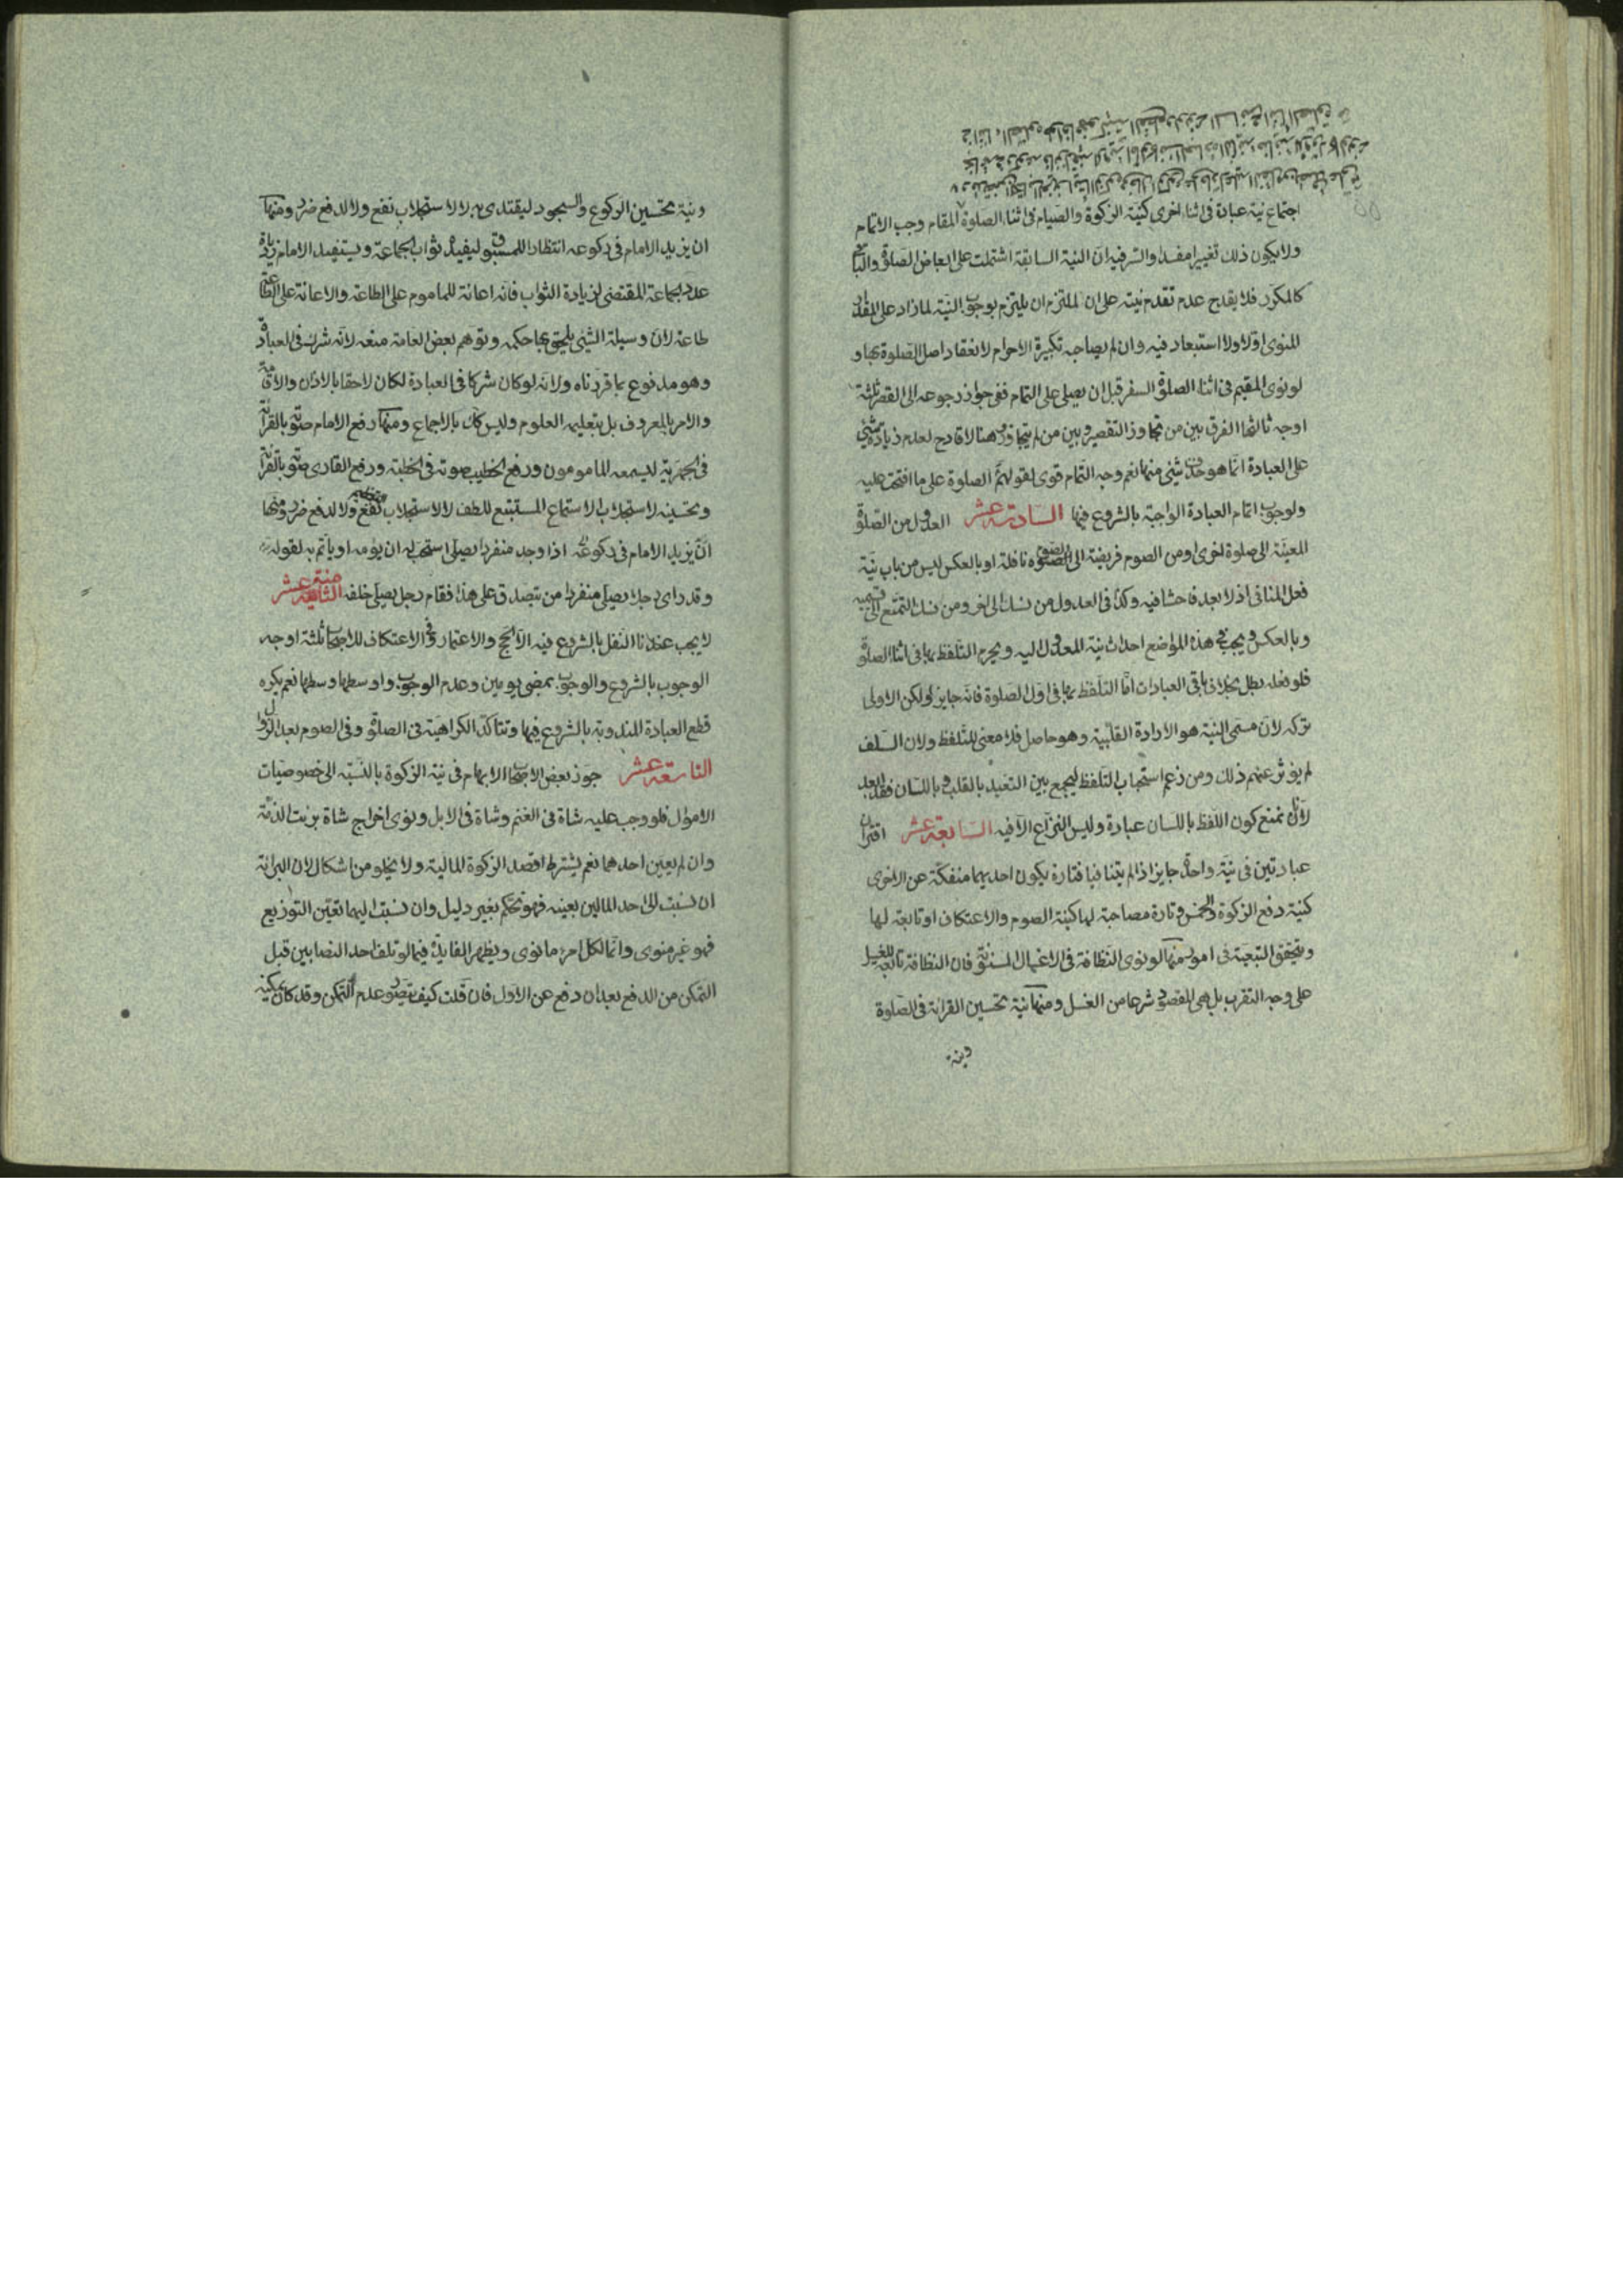 اجتماع نية عبادة فى اثناء اخرى كنية الزكوة والصيام فى اثناء الصلوة المقام وجب الاتمام
ولا يكون ذلك تغييرا مفسدا والسر فيه ان النية السابقة اشتملت على ابعاض الصلوة والباقى
كالمكرر فلا يقدح عدم تقدم نيته على ان الملتزم ان يلتزم بوجوب النية لما زاد على المقدار
المنوى اولا ولا استبعاد فيه وان لم يصاحبه تكبيرة الاحرام لانعقاد اصل الصلوة بها و
لو نوى المقيم فى اثناء الصلوة السفر قبل ان يصلى على التمام ففى جواز رجوعه الى القصر ثلثة
اوجه ثالثها الفرق بين من تجاوز التقصير وبين من لم يتجاوز وهنا لا قادح لعدم زيادة شئ
على العبادة انما هو حذف شئ منها نعم وجه التمام قوى لقولهم الصلوة على ما افتتحت عليه
ولوجوب اتمام العبادة الواجبة بالشروع فيها السادسة عشر العدول من الصلوة
المعينة الى صلوة اخرى او من الصوم فريضة الى الصوم نافلة او بالعكس ليس من باب نية
فعل المنافى اذ لا بعد فاحشا فيه وكذا فى العدول من نسك الى اخر ومن نسك التمتع الى قسميه
وبالعكس ويجب فى هذه المواضع احداث نية المعدول اليه ويحرم التلفظ بها فى اثناء الصلوة
فلو فعله بطل بخلاف باقى العبادات اما التلفظ بها فى اول الصلوة فانه جايز ولكن الاولى
تركه لان مسمى النية هو الارادة القلبية وهو حاصل فلا معنى للتلفظ ولان السلف
لم يؤثر عنهم ذلك ومن زعم استحباب التلفظ ليجمع بين التعبد بالقلب وباللسان فقد ابعد
لانا نمنع كون اللفظ باللسان عبادة وليس النزاع الا فيه السابعة عشر اقتران
عبادتين فى نية واحدة جايز اذا لم يتنافيا فتارة يكون احديهما منفكة عن الاخرى
كنية دفع الزكوة والخمس وتارة مصاحبة لها كنية الصوم والاعتكاف او تابعة لها
ويتحقق التبعية فى امور منها لو نوى النظافة فى الاغسال المسنونة فان النظافة تابعة للغسل
على وجه التقرب بل هى المقصود شرعا من الغسل ومنها نية تحسين القرائة فى الصلوة
ونية
ونية تحسين الركوع والسجود ليقتدى به لا لاستجلاب نفع ولا لدفع ضرر ومنها
ان يزيد الامام فى ركوعه انتظارا للمسبوق ليفيده ثواب الجماعة ويستفيد الامام زيادة
عدد الجماعة المقتضى لزيادة الثواب فانه اعانة للماموم على الطاعة والاعانة على الطاعة
طاعة لان وسيلة الشئ يلحق بها حكمه وتوهم بعض العامة منعه لانه شرك فى العبادة
وهو مدفوع بما قررناه ولانه لو كان شركا فى العبادة لكان لاحقا بالاذان والاقامة
والامر بالمعروف بل بتعليم العلوم وليس كك بالاجماع ومنها رفع الامام صوته بالقرائة
فى الجهرية ليسمعه المامومون ورفع الخطيب صوته فى الخطبة ورفع القارى صوته بالقرائة
وتحسينه لاستجلاب الاستماع المستتبع للطف لا لاستجلاب نفع ولا لدفع ضرر ومنها
ان يزيد الامام فى ركوعه اذا وجد منفردا يصلى استحب له ان يؤمه او يأتم به لقوله
وقد راى رجلا يصلى منفردا من يتصدق على هذا فقام رجل يصلى خلفه الثامنة عشر
لا يجب عندنا النفل بالشروع فيه الا الحج والاعتمار وفى الاعتكاف للاصحاب ثلثة اوجه
الوجوب بالشروع والوجوب بمضى يومين وعدم الوجوب واوسطها وسطها نعم يكره
قطع العبادة المندوبة بالشروع فيها وتتاكد الكراهية فى الصلوة وفى الصوم بعد الزوال
التاسعة عشر جوز بعض الاصحاب الابهام فى نية الزكوة بالنسبة الى خصوصيات
الاموال فلو وجب عليه شاة فى الغنم وشاة فى الابل ونوى اخراج شاة برئت الذمة
وان لم يعين احدهما نعم يشترط قصد الزكوة المالية ولا يخلو من اشكال لان البرائة
ان نسبت الى احد المالين بعينه فهو تحكم بغير دليل وان نسبت اليهما تعين التوزيع
فهو غير منوى وانما لكل امرء ما نوى ويظهر الفايدة فيما لو تلف احد النصابين قبل
التمكن من الدفع بعد ان دفع عن الاول فان قلت كيف يتصور عدم التمكن وقد كان يمكنه